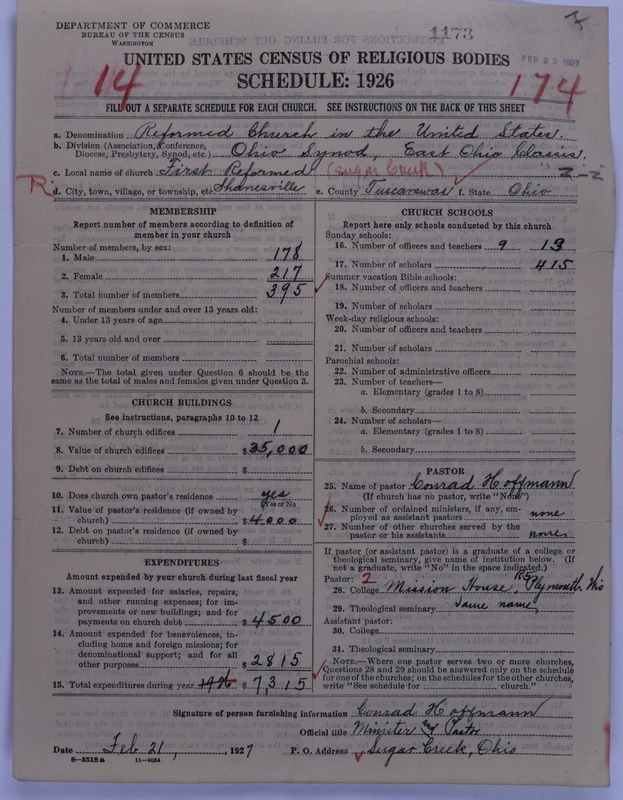 DEPARTMENT OF COMMERCE
BUREAU OF THE CENSUS
WASHINGTON
1173
FEB 23 1927
UNITED STATES CENSUS OF RELIGIOUS BODIES
SCHEDULE: 1926
14
174
FILL OUT A SEPARATE SCHEDULE FOR EACH CHURCH. SEE INSTRUCTIONS ON THE BACK OF THIS SHEET
a. Denomination Reformed Church in the United States
b. Division (Association, Conference,
Diocese, Presbytery, Synod, etc.) Ohio Synod, East Ohio Classis.
c. Local name of church First Reformed (Sugar Creek) "2-2"
R d. City, town, village, or township, etc. Shanesville e. County Tuscarawas f. State Ohio
MEMBERSHIP
Report number of members according to definition of
member in your church
Number of members, by sex:
1. Male 178
2. Female 217
3. Total number of members 395
Number of members under and over 13 years old:
4. Under 13 years of age
5. 13 years old and over
6. Total number of members
NOTE.—The total given under Question 6 should be the
same as the total of males and females given under Question 3.
CHURCH BUILDINGS
See instructions, paragraphs 10 to 12
7. Number of church edifices 1
8. Value of church edifices $35,000
9. Debt on church edifices $
10. Does church own pastor's residence yes
(Yes or No)
11. Value of pastor's residence (if owned by
church) $4000
12. Debt on pastor's residence (if owned by
church) $
EXPENDITURES
Amount expended by your church during last fiscal year
13. Amount expended for salaries, repairs,
and other running expenses; for im-
provements or new buildings; and for
payments on church debt $4500
14. Amount expended for benevolences, in-
cluding home and foreign missions; for
denominational support; and for all
other purposes $2815
15. Total expenditures during year 1926 $7,315
CHURCH SCHOOLS
Report here only schools conducted by this church
Sunday schools:
16. Number of officers and teachers 9 13
17. Number of scholars 415
Summer vacation Bible schools:
18. Number of officers and teachers
19. Number of scholars
Week-day religious schools:
20. Number of officers and teachers
21. Number of scholars
Parochial schools:
22. Number of administrative officers
23. Number of teachers—
a. Elementary (grades 1 to 8)
b. Secondary
24. Number of scholars—
a. Elementary (grades 1 to 8)
b. Secondary
PASTOR
25. Name of pastor Conrad Hoffmann
(If church has no pastor, write "None")
26. Number of ordained ministers, if any, em-
ployed as assistant pastors none
27. Number of other churches served by the
pastor or his assistants none
If pastor (or assistant pastor) is a graduate of a college or
theological seminary, give name of institution below. (If
not a graduate, write "No" in the space indicated.)
Pastor: 2
28. College Mission House, Plymouth Wis
29. Theological seminary Same name
Assistant pastor:
30. College
31. Theological seminary
NOTE.—Where one pastor serves two or more churches,
Questions 28 and 29 should be answered only on the schedule
for one of the churches; on the schedules for the other churches,
write "See schedule for church."
Signature of person furnishing information Conrad Hoffmann
Official title Minister Pastor
Date Feb 21, 1927 P. O. Address Sugar Creek, Ohio
8—5518a 11—9084